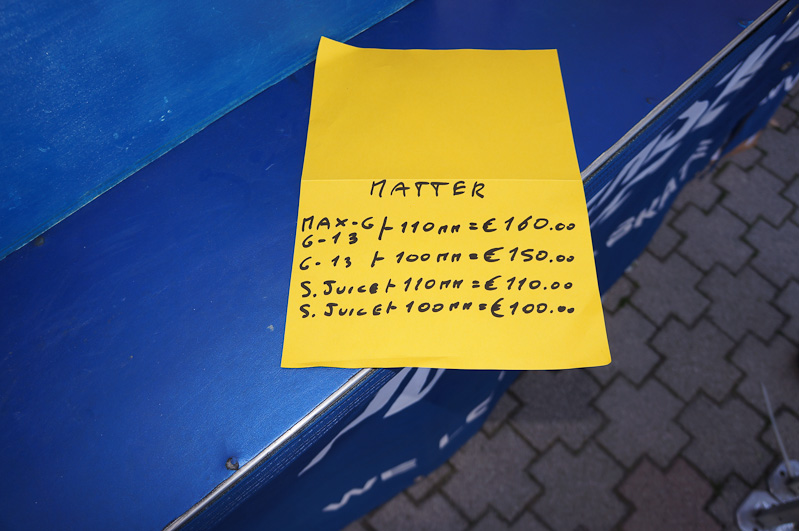 MATTER
MAX-G ⊢ 110mm = € 160.00
G-13
G-13 ⊢ 100mm = € 150.00
S. JUICE ⊢ 110mm = € 110.00
S. JUICE ⊢ 100mm = € 100.00
WE
SKATE